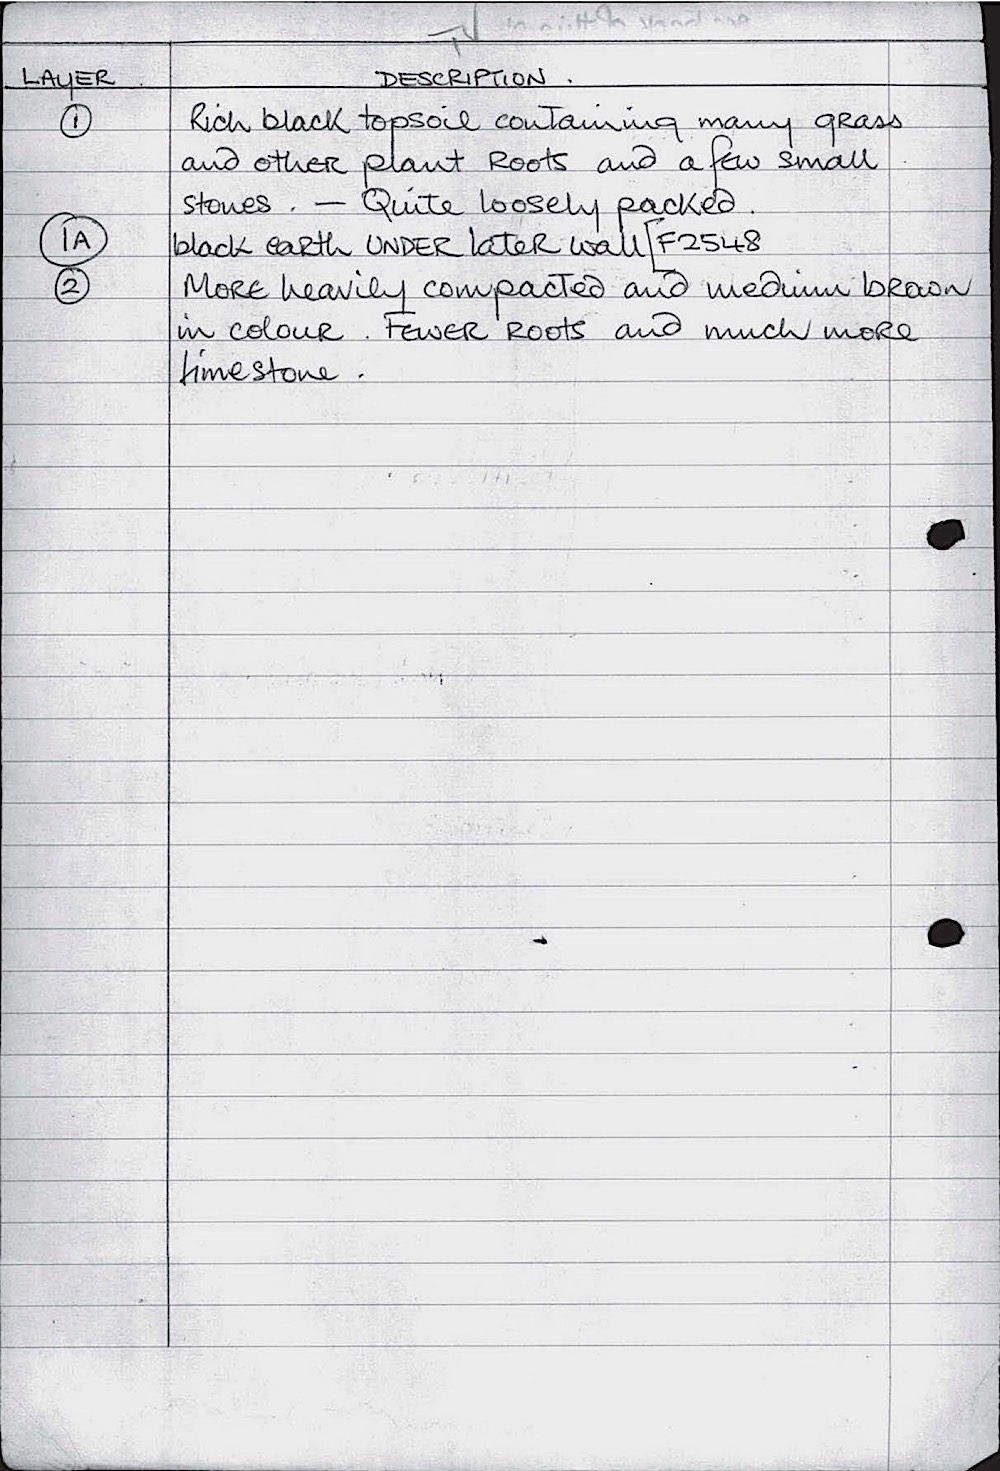 LAYER DESCRIPTION.
① Rich black topsoil containing many grass
and other plant Roots and a few small
stones. — Quite loosely packed.
1A black earth UNDER later wall [F2548
② More heavily compacted and medium brown
in colour. Fewer Roots and much more
limestone.